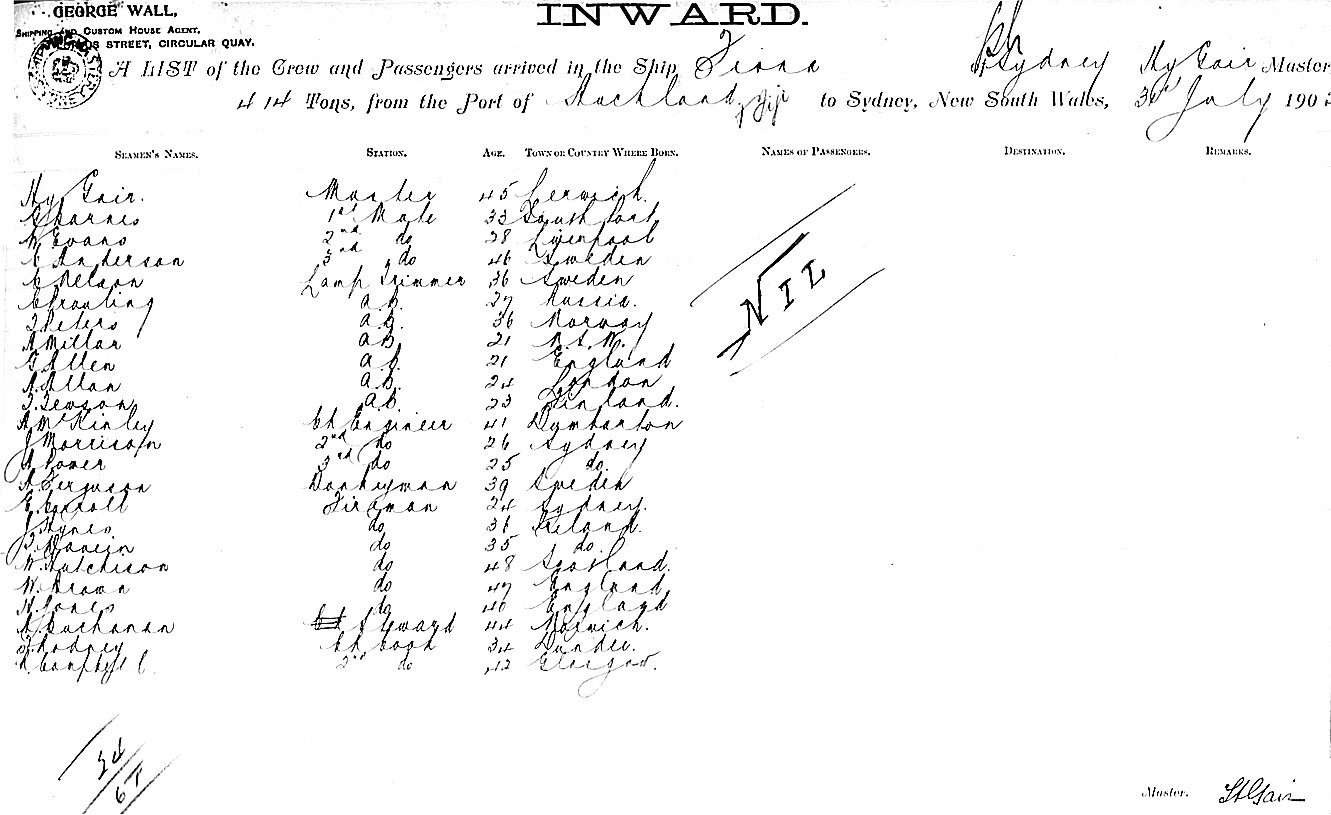 GEORGE WALL,
SHIPPING AND CUSTOM HOUSE AGENT,
STREET, CIRCULAR QUAY.
INWARD.
A LIST of the Crew and Passengers arrived in the Ship Fiona Sydney Hy Gair Master
414 Tons, from the Port of Auckland Fiji to Sydney, New South Wales, July 190
SEAMEN'S NAMES. STATION. AGE. TOWN OR COUNTRY WHERE BORN. NAMES OF PASSENGERS. DESTINATION. REMARKS.
Hy Gair. Master 45 Lerwick.
1st Mate 33 Southport
W Evans 2nd do 28 Liverpool
C Anderson 3rd do 46 Sweden
C Nelson Lamp Trimmer 36 Sweden
a.B. 27 Russia.
Peters a.B. 36 Norway
A Millar a.B. 21 N.S.W.
G Allen a.B. 21 England
A. Allan a.B. 24 London
a.B. 23 Finland.
A McKinley Ch Engineer 41 Dumbarton
J Morrison 2nd do 26 Sydney
3rd do 25 do.
A Ferguson Donkeyman 39 Sweden
E. Carroll Fireman 24 Sydney.
J Hynes do 31 Ireland.
do 35 do.
W. Hutchison do 48 Scotland.
W. Brown do 47 England
H. Jones do 40 England
A. Buchanan Steward 44
Rodney Ch Cook 34 Dundee.
Campbell 2nd do 42 Glasgow.
NIL
24
67
Master. H Gair